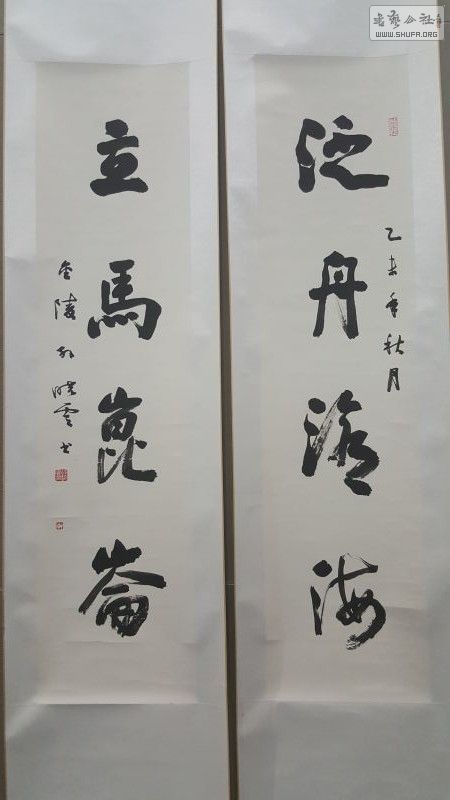 書藝公社
WWW.SHUFA.ORG
泛舟滄海
乙未年秋月
立馬崑崙
金陵孙曉雲书